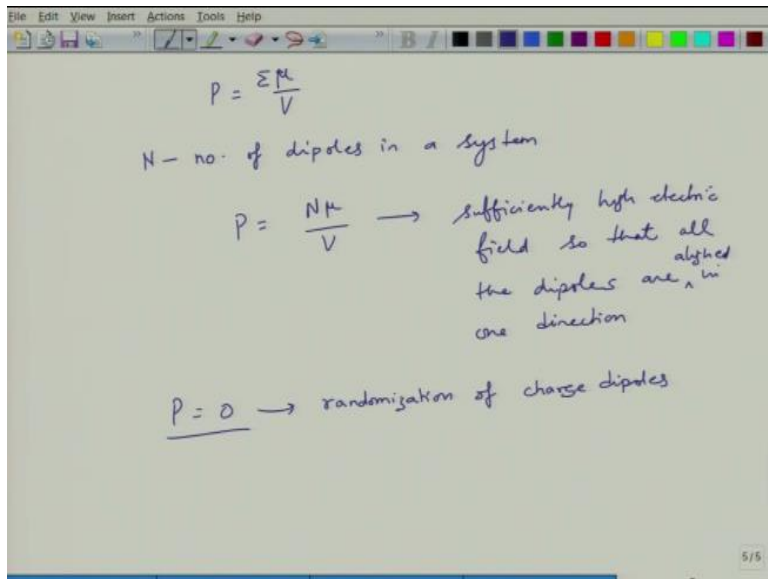 File Edit View Insert Actions Tools Help
P = Σμ/V
N – no. of dipoles in a system
P = Nμ/V → sufficiently high electric
field so that all
aligned
the dipoles are ^ in
one direction
P = 0 → randomization of charge dipoles
5/5